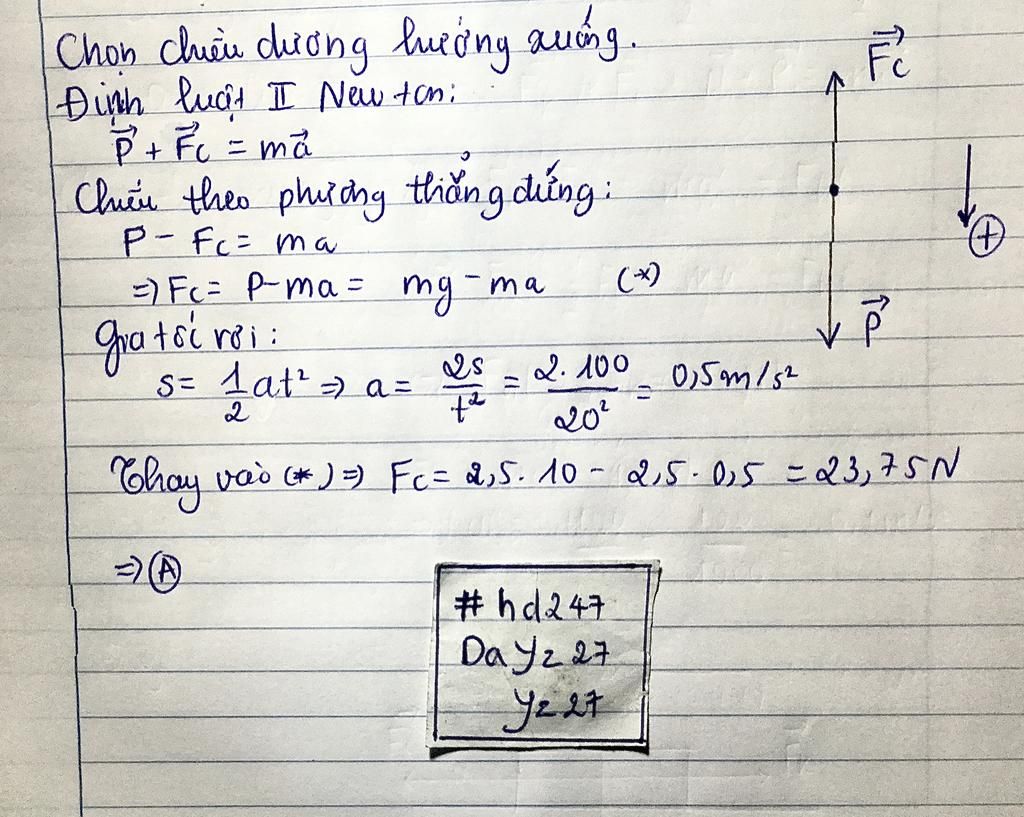 Chọn chiều dương hướng xuống.
Định luật II Newton:
P⃗ + F⃗c = ma⃗
Chiếu theo phương thẳng đứng:
P - Fc = ma
=> Fc = P - ma = mg - ma (*)
Gia tốc rơi:
s = 1/2 at² => a = 2s/t² = 2.100/20² = 0,5m/s²
Thay vào (*) => Fc = 2,5.10 - 2,5.0,5 = 23,75N
=> A
F⃗c
+
P⃗
#hd247
Dayz27
yz27